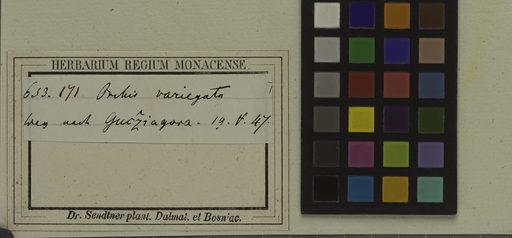 HERBARIUM REGIUM MONACENSE.
653. 171 Orchis variegata
Weg nach Gučžiagora. 19. V. 47.
Dr. Sendtner plant. Dalmat. et Bosniac.